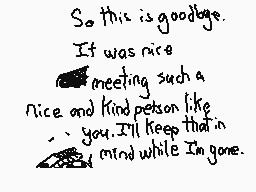 So this is goodbye.
It was nice
meeting such a
nice and kind person like
you. I'll keep that in
mind while I'm gone.